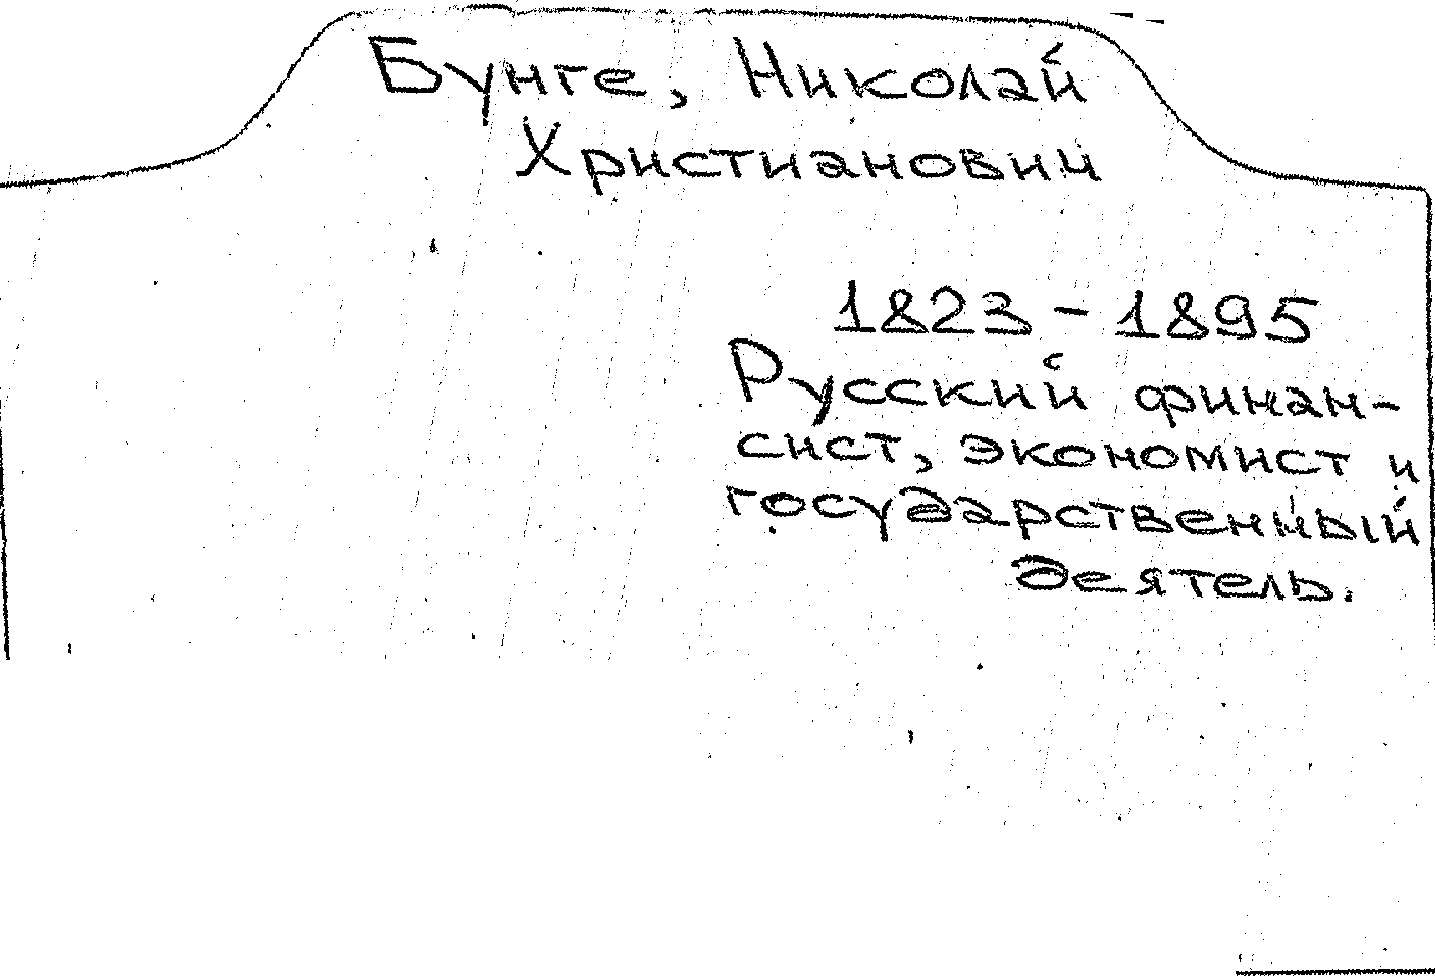 Бунге, Николай
Христианович
1823 - 1895
Русский финан-
сист, экономист и
государственный
деятель.